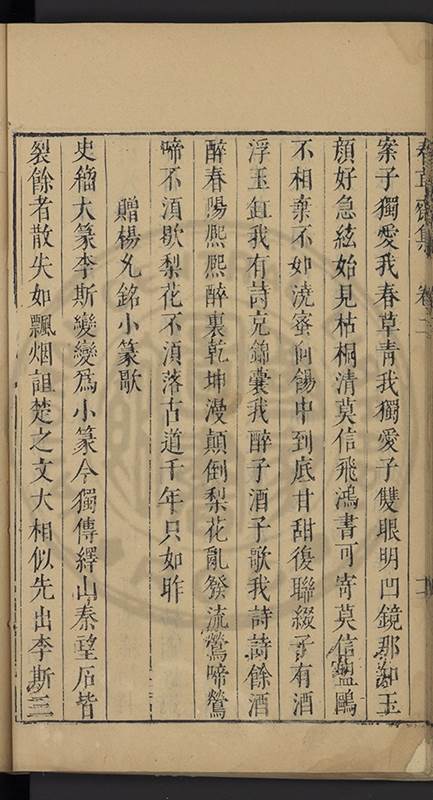 案子獨愛我春草青我獨愛子雙眼明凹鏡那知玉
顔好急絃始見枯桐清莫信飛鴻書可寄莫信盟鷗
不相棄不如澆蜜向餳中到底甘甜復聯綴子有酒
浮玉缸我有詩克錦囊我醉子酒子歌我詩詩餘酒
醉春陽熈熈醉裏乾坤漫顛倒梨花亂發流鶯啼鶯
啼不湏歇梨花不湏落古道千年只如昨
贈楊允銘小篆歌
史籀大篆李斯變變爲小篆今獨傳繹山秦望石皆
裂餘者散失如飄烟詛楚之文大相似先出李斯三